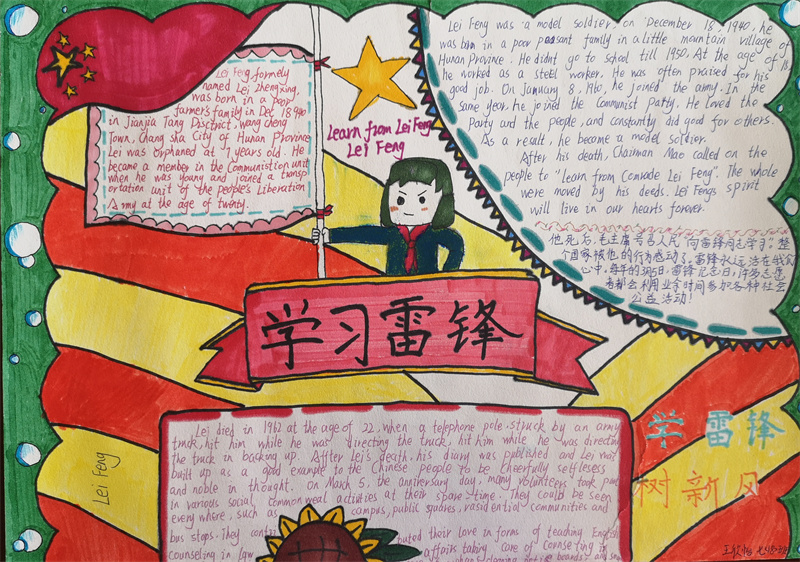 Lei Feg, formely
named Lei Zhengxing,
was born in a poor
farmer's family in Dec 18 1940
in Jianjia Tang Disctrict, wang cheng
Town, Chang sha City of Hunan Province
Lei was orphaned at 7 years old. He
became a member in the Communistion unit
when he was young and joined a transp
ortation unit of the people's Liberation
Army at the age of twenty.
Learn from Lei Feng
Lei Feng
Lei Feng was a model soldier, on December 18, 1940, he
was born in a poor peasant family in a little mountain village of
Hunan Province. He didnt go to school till 1950. At the age of 18
he worked as a steel worker. He was often praised for his
good job. On January 8, 1960, he joined the army. In the
same year, he joined the Communist Party. He loved the
Party and the people, and constantly did good for others.
As a result, he become a model soldier.
After his death, Chairman Mao called on the
people to "Learn from Comrade Lei Feng". The whole
were moved by his deeds. Lei Feng's spirit
will live in our hearts forever.
他死后,毛主席号召人民"向雷锋同志学习",整
个国家被他的行为感动了。雷锋永远活在我们
心中,每年的3月5日,雷锋纪念日,许多志愿
者都会利用业余时间参加各种社会
公益活动!
学习雷锋
Lei died in 1962 at the age of 22, when a telephone pole. struck by an army
truck, hit him while he was directing the truck, hit him while he was directing
the truck in backing up. After Lei's death, his diary was published and Lei was
built up as a good example to the Chinese people to be cheerfully selfeless
and noble in thought. On March 5, the anniversary day, many volunteers took part
in various social common weal activities at their spare time. They could be seen
every where, such as campus, public squares, rasidential communities and
bus stops. They buted their love in forms of teaching English
counseling in law affairs taking care of counseling in
Lei Feng
学雷锋
树新风